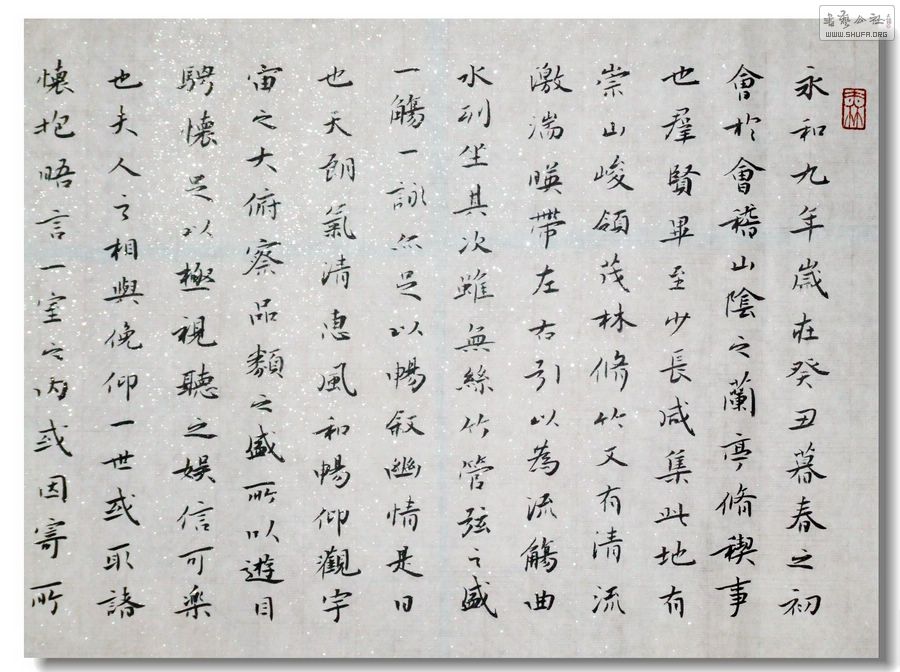 永和九年歲在癸丑暮春之初
會於會稽山陰之蘭亭脩稧事
也羣賢畢至少長咸集此地有
崇山峻領茂林脩竹又有清流
激湍暎帶左右引以為流觴曲
水列坐其次雖無絲竹管弦之盛
一觴一詠亦足以暢敘幽情是日
也天朗氣清惠風和暢仰觀宇
宙之大俯察品類之盛所以遊目
騁懷足以極視聽之娛信可樂
也夫人之相與俛仰一世或取諸
懷抱晤言一室之內或因寄所
WWW.SHUFA.ORG